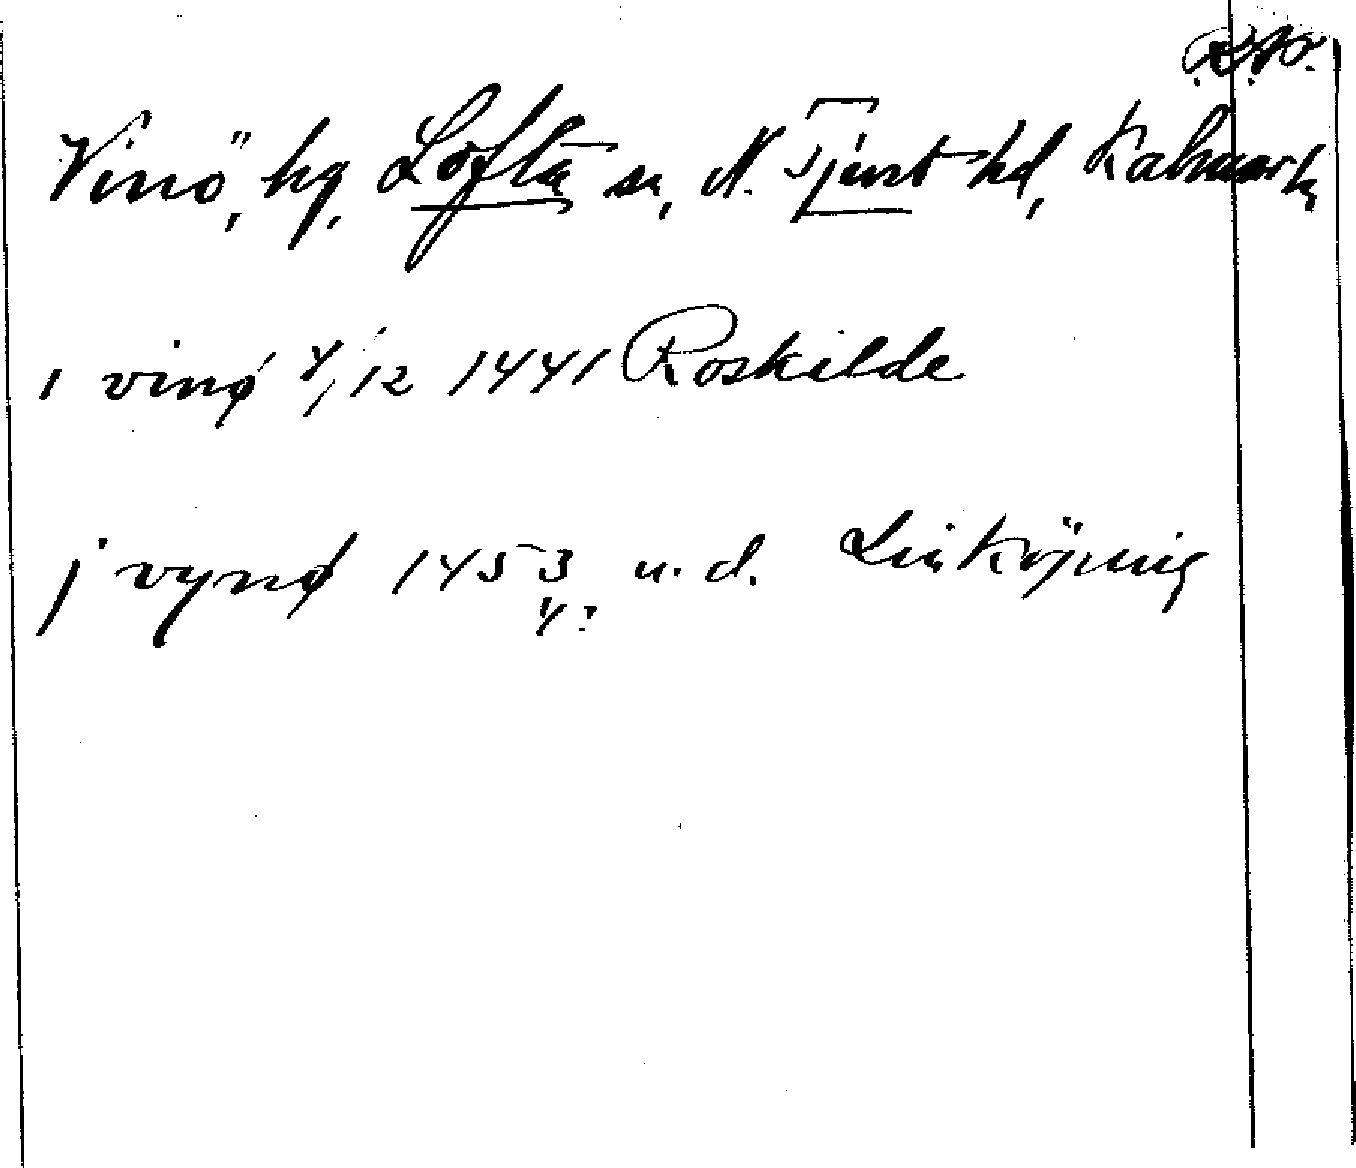 Vinö, hg, Lofta sn, N. Tjust hd, Kalmar l.
i vinø 4/12 1441 Roskilde
j vynø 1453 u. d. Linköping